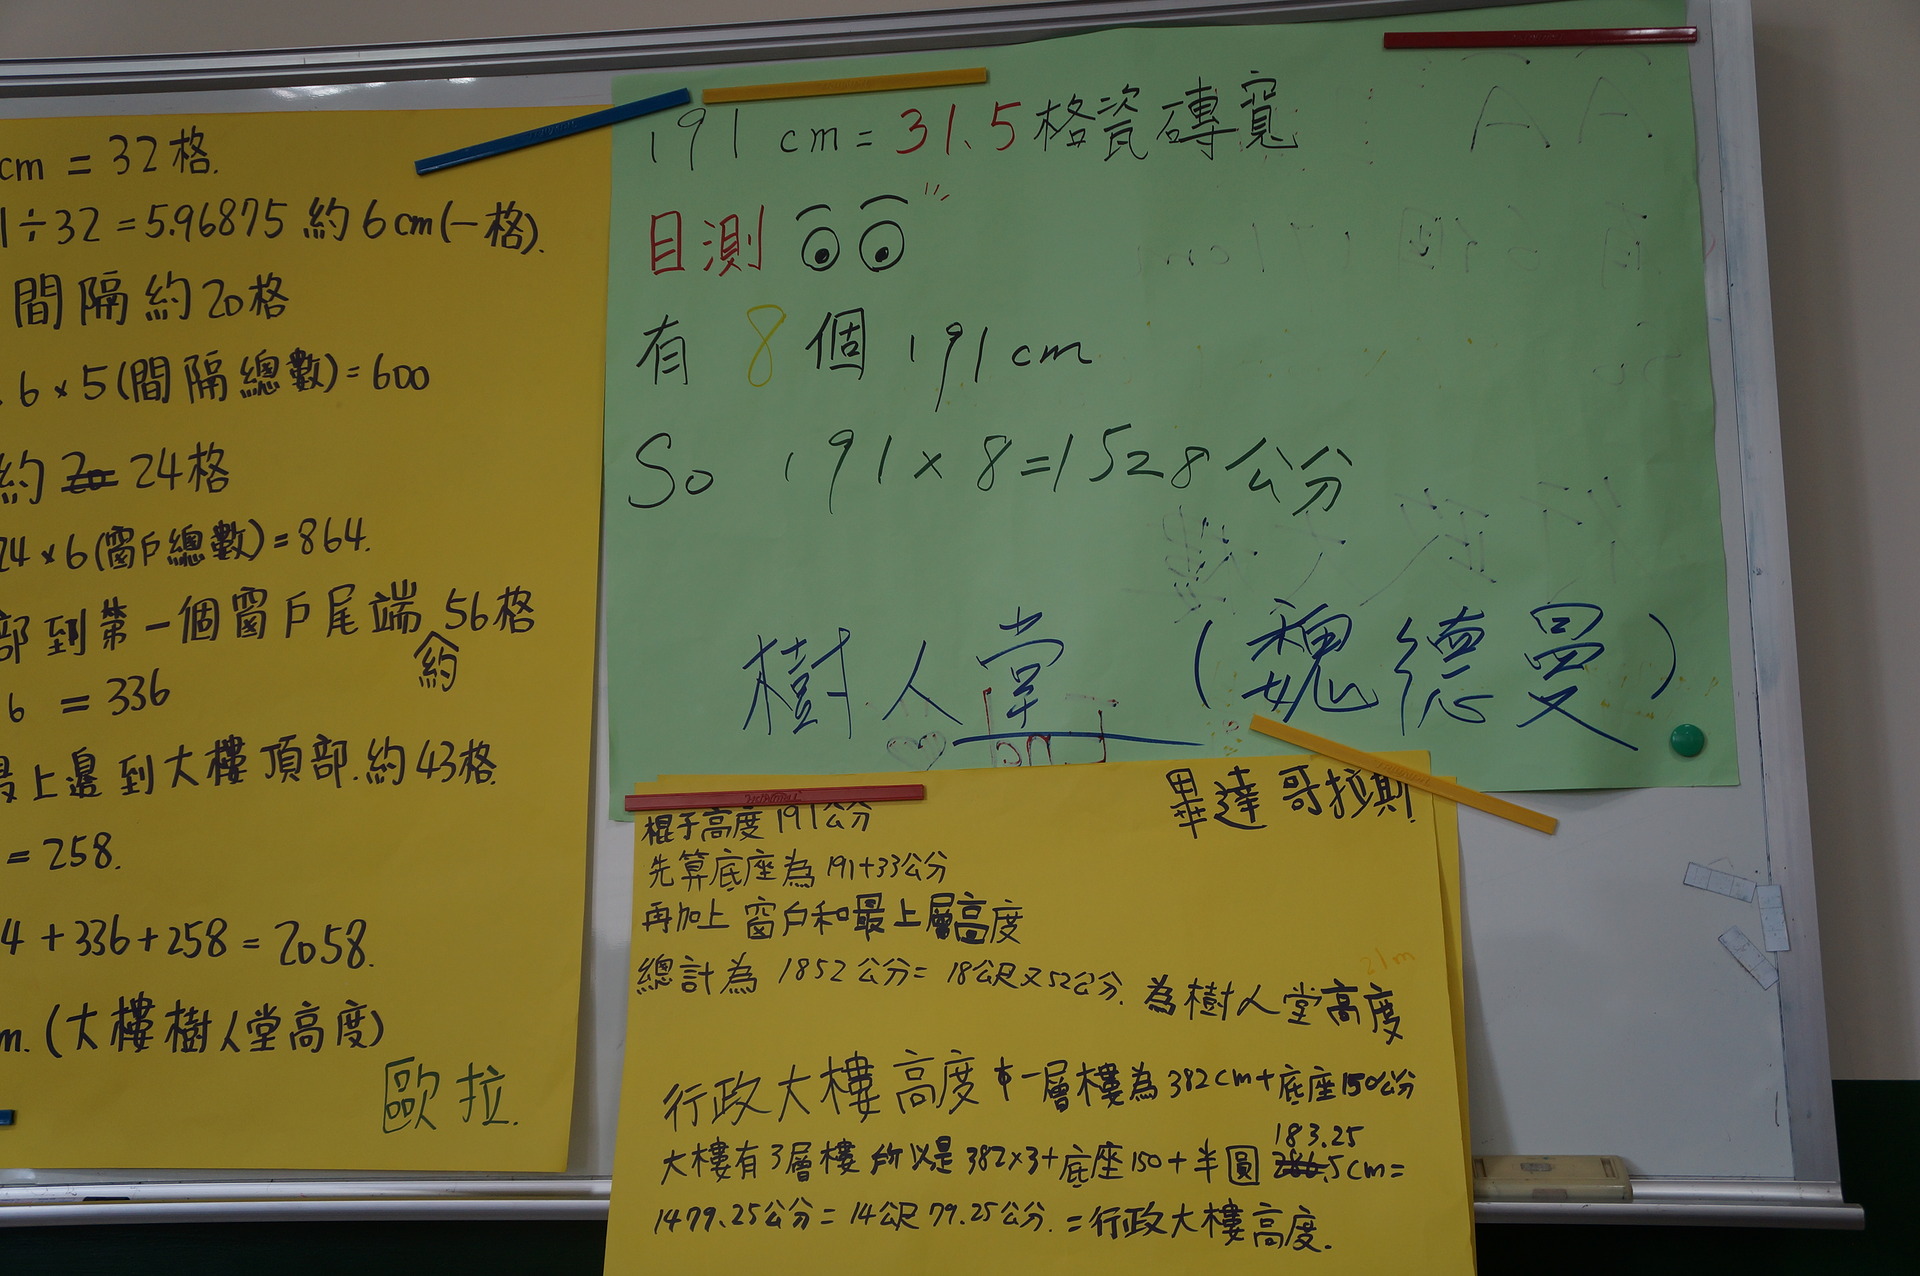 cm = 32格.
1÷32=5.96875 約6cm(一格).
間隔約20格
6×5(間隔總數)=600
約 24格
24×6(窗戶總數)=864.
部到第一個窗戶尾端約56格
6 = 336
最上邊到大樓頂部.約43格
= 258.
4+336+258=2058.
m.(大樓樹人堂高度)
歐拉.
191 cm = 31.5格瓷磚寬
目測
有 8 個 191cm
So 191×8=1528公分
樹人堂 (魏德曼)
畢達哥拉斯
棍子高度191公分
先算底座為191+33公分
再加上窗戶和最上層高度
總計為 1852公分= 18公尺又52公分. 為樹人堂高度
21m
行政大樓高度 一層樓為382cm+底座150公分
大樓有3層樓 所以是382×3+底座150+半圓183.25cm=
1479.25公分=14公尺79.25公分.=行政大樓高度.